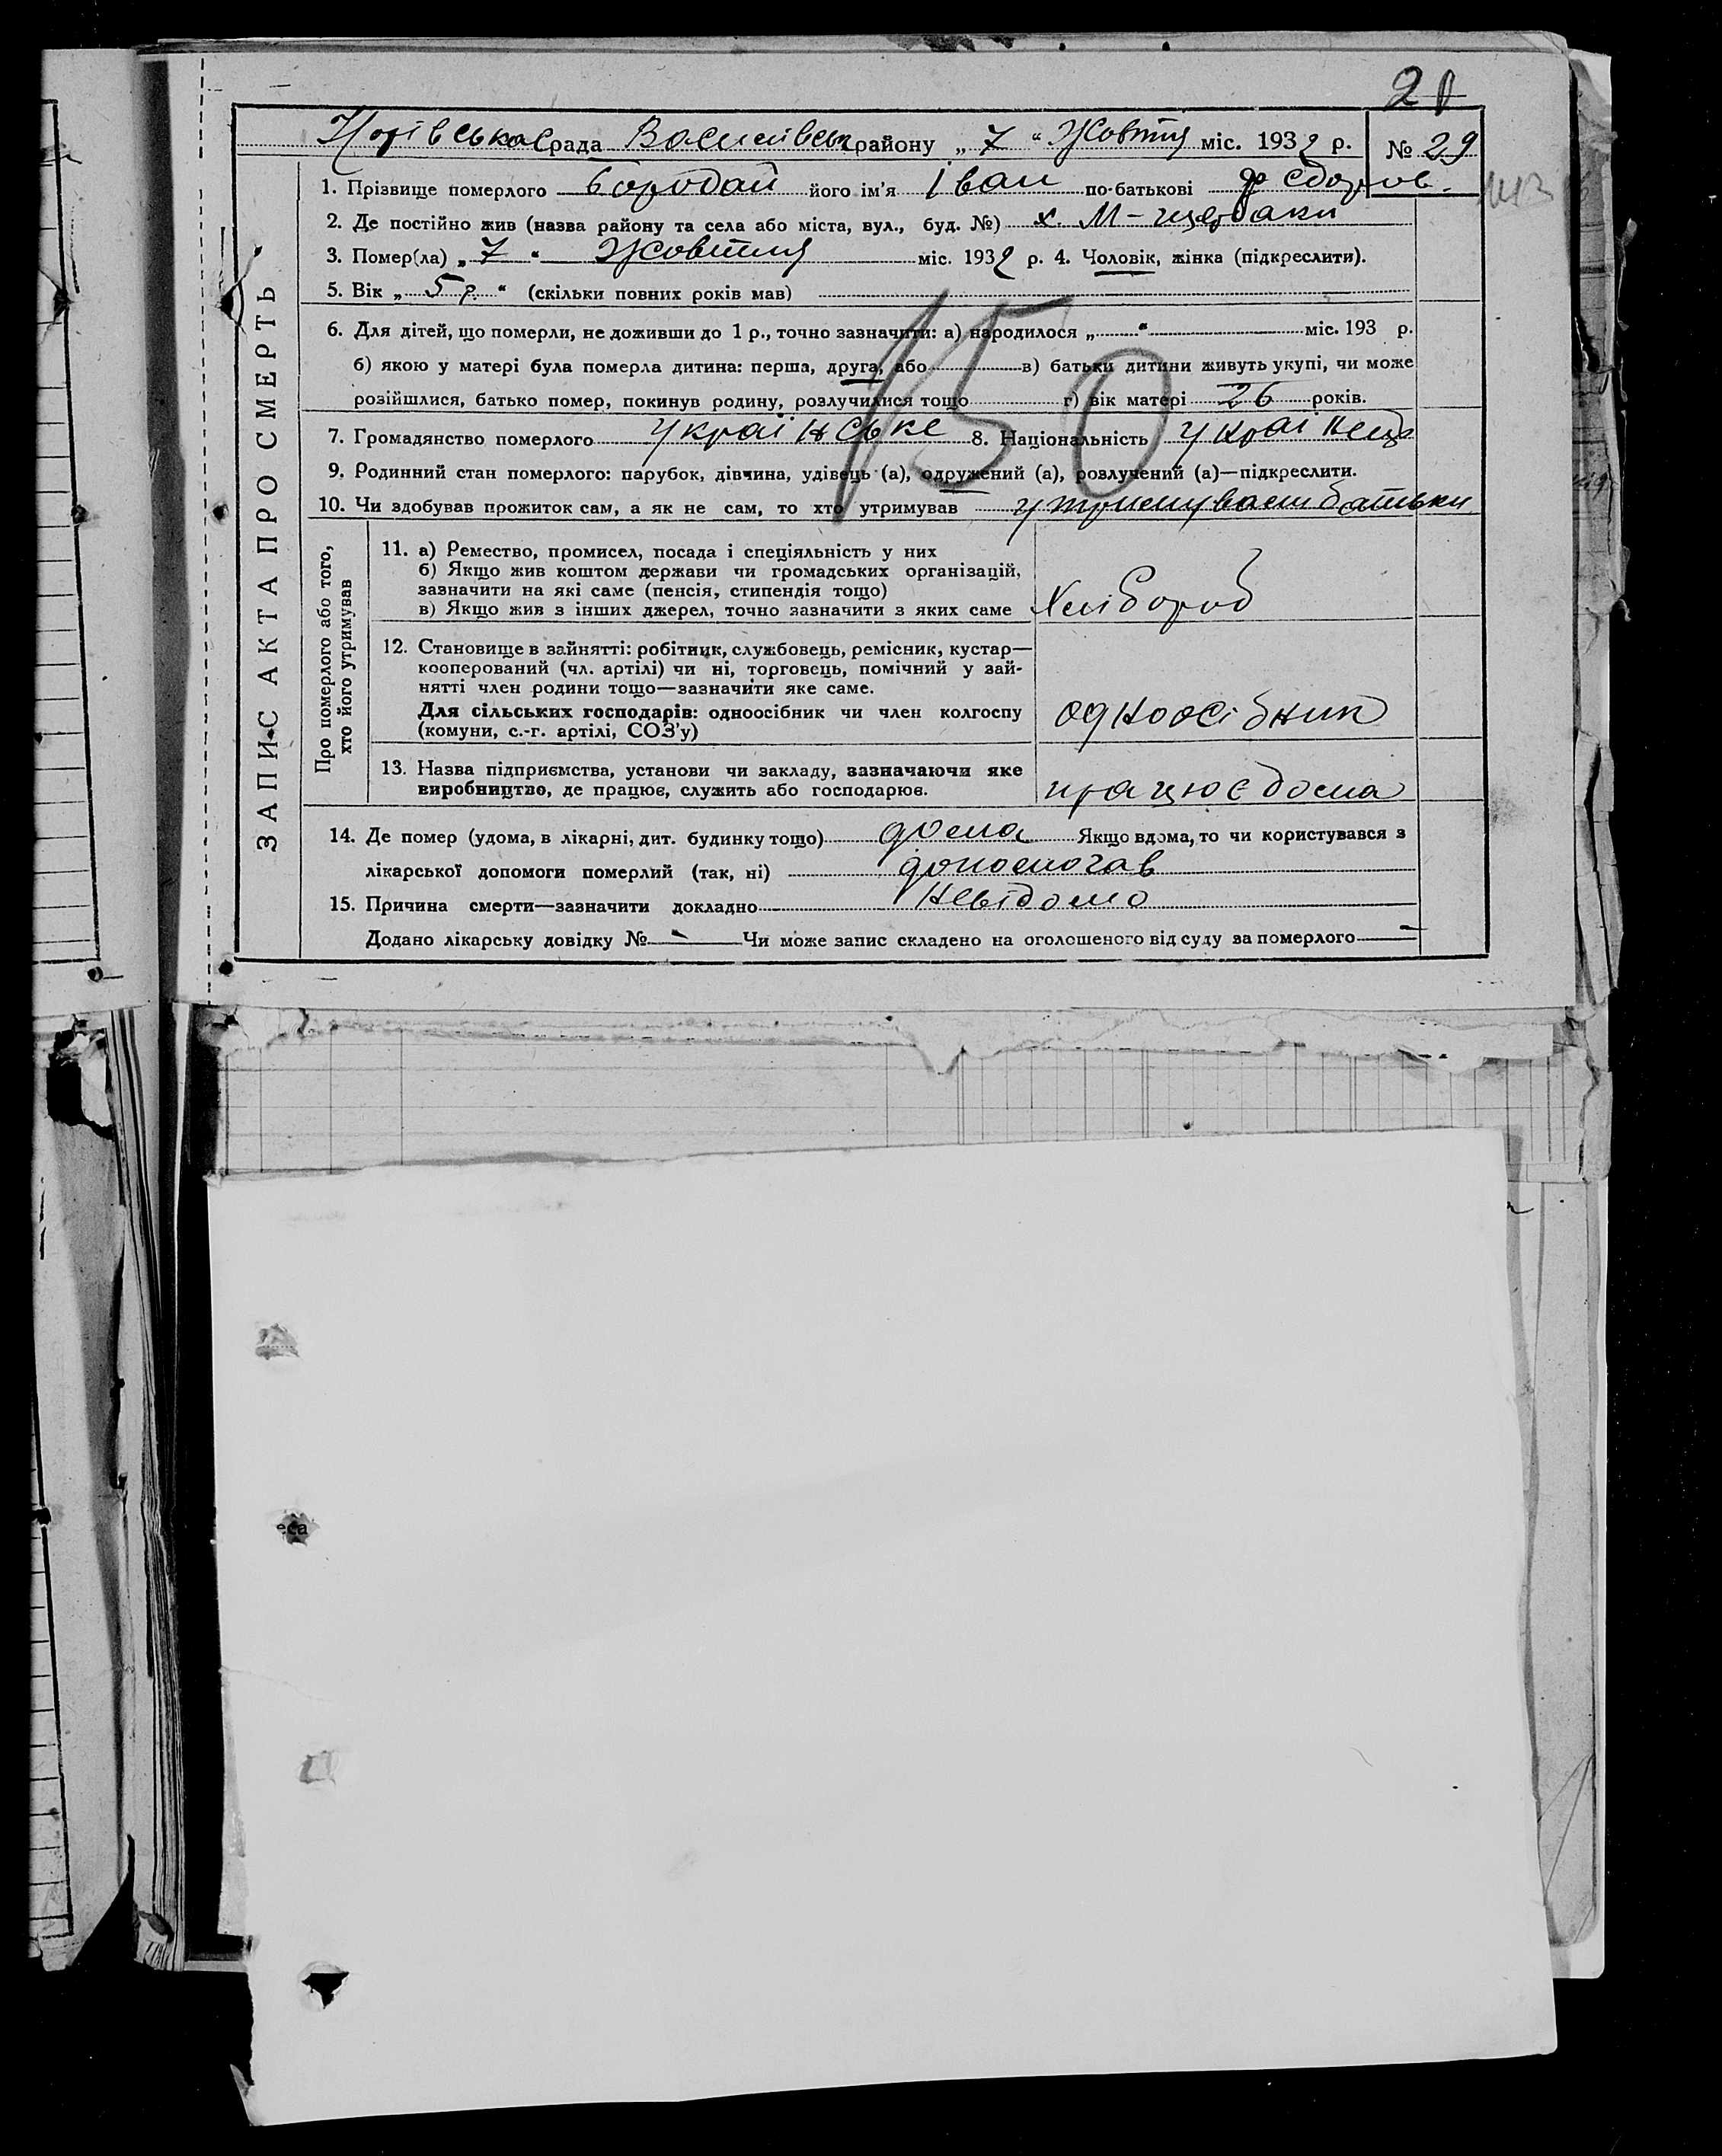 28
ЗАПИС АКТА ПРО СМЕРТЬ
рада Василівськ району „ 7 “ Жовтня міс. 1932 р. № 29
1. Прізвище померлого Бородай його ім'я Іван по-батькові Федоров.
2. Де постійно жив (назва району та села або міста, вул., буд. №) х. М-щербаки
3. Помер(ла) „ 7 “ Жовтня міс. 1932 р. 4. Чоловік, жінка (підкреслити).
5. Вік „ 5 р. “ (скільки повних років мав)
6. Для дітей, що померли, не доживши до 1 р., точно зазначити: а) народилося „ “ міс. 193 р.
б) якою у матері була померла дитина: перша, друга, або в) батьки дитини живуть укупі, чи може
розійшлися, батько помер, покинув родину, розлучилися тощо г) вік матері 26 років.
150
7. Громадянство померлого українське 8. Національність українець
9. Родинний стан померлого: парубок, дівчина, удівець (а), одружений (а), розлучений (а)—підкреслити.
10. Чи здобував прожиток сам, а як не сам, то хто утримував утримували батьки
Про померлого або того,
хто його утримував
11. а) Ремество, промисел, посада і спеціяльність у них
б) Якщо жив коштом держави чи громадських організацій,
зазначити на які саме (пенсія, стипендія тощо)
в) Якщо жив з інших джерел, точно зазначити з яких саме Хлібороб
12. Становище в зайнятті: робітник, службовець, ремісник, кустар—
кооперований (чл. артілі) чи ні, торговець, помічний у зай-
нятті член родини тощо—зазначити яке саме.
Для сільських господарів: одноосібник чи член колгоспу одноосібник
(комуни, с.-г. артілі, СОЗ'у)
13. Назва підприємства, установи чи закладу, зазначаючи яке
виробництво, де працює, служить або господарює. працює дома
14. Де помер (удома, в лікарні, дит. будинку тощо) дома Якщо вдома, то чи користувався з
лікарської допомоги померлий (так, ні) допомогав
15. Причина смерти—зазначити докладно Невідомо
Додано лікарську довідку № - Чи може запис складено на оголошеного від суду за померлого —
еса